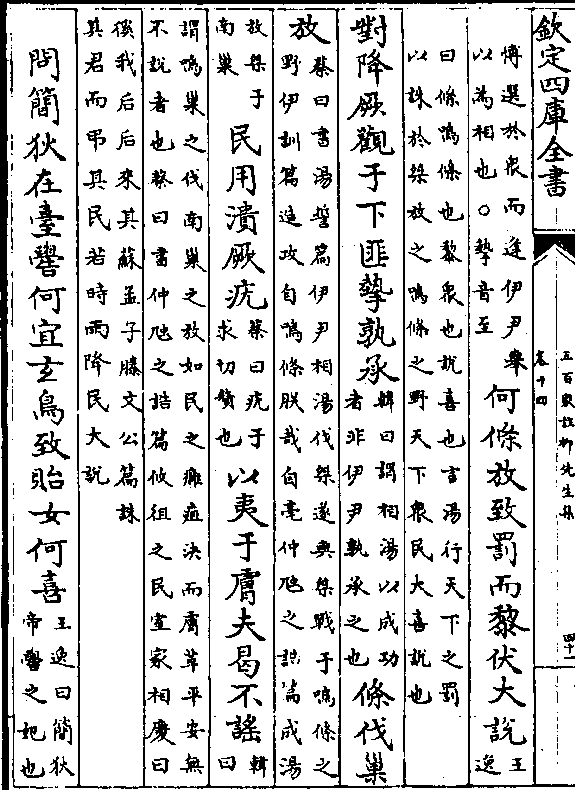 欽定四庫全書
五百家註柳先生集
卷十四
四十一
博選於衆而逢伊尹擧
以為相也〇摯音至
何條放致罰而黎伏大說
王
逸
曰條鳴條也黎衆也說喜也言湯行天下之罰
以誅於桀放之鳴條之野天下衆民大喜說也
對降厥觀于下匪摯孰承
韓曰謂相湯以成功
者非伊尹孰承之也
條伐巢
放
蔡曰書湯誓篇伊尹相湯伐桀遂與桀戰于鳴條之
野伊訓篇造攻自鳴條朕哉自亳仲虺之誥篇成湯
放桀于
南巢
民用潰厥疣
蔡曰疣于
求切贅也
以夷于膚夫曷不謠
韓
曰
謂鳴巢之伐南巢之放如民之癰疽決而膚革平安無
不說者也蔡曰書仲虺之誥篇攸徂之民室家相慶曰
徯我后后來其蘇孟子滕文公篇誅
其君而弔其民若時雨降民大說
問簡狄在臺嚳何宜玄鳥致貽女何喜
王逸曰簡狄
帝嚳之妃也